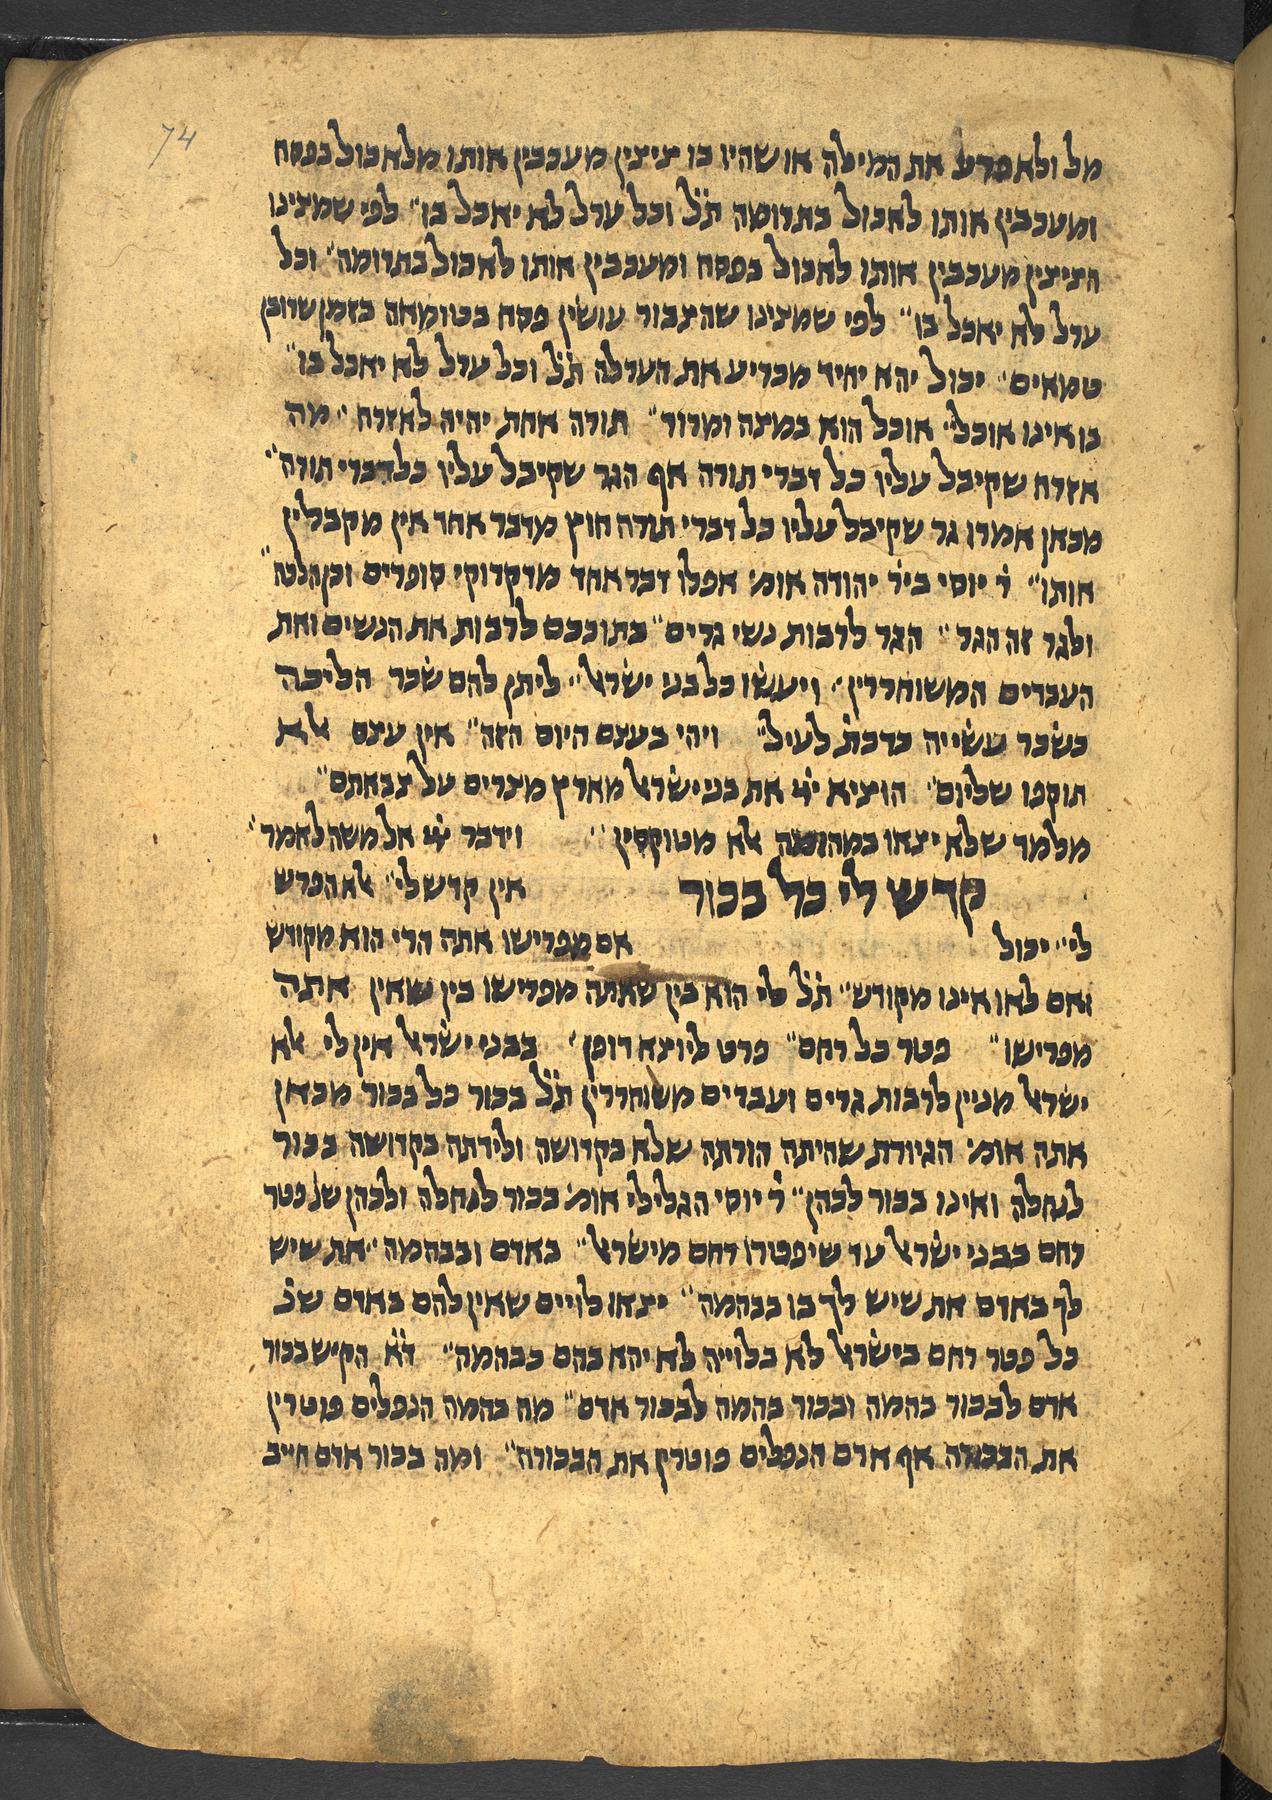 74
מל ולא פרע את המילה או שהיו בו ציצין מעכבין אותו מלאכול בפסח
ומעכבין אותו לאכול בתרומה ת֯ל֯ וכל ערל לא יאכל בו״ לפי שמצינו
הציצין מעכבין אותו לאכול בפסח ומעכבין אותו לאכול בתרומה״ וכל
ערל לא יאכל בו״ לפי שמצינו שהצבור עושין פסח בטומאה בזמן שרובן
טמאים״ יכול יהא יחיד מכריע את הערלה ת֯ל֯ וכל ערל לא יאכל בו״
בו אינו אוכל״ אוכל הוא במצה ומרור״ תורה אחת יהיה לאזרח״ מה
אזרח שקיבל עליו כל דברי תורה אף הגר שקיבל עליו כל דברי תורה״
מכאן אמרו גר שקיבל עליו כל דברי תורה חוץ מדבר אחר אין מקבלין
אותו״ ר֯ יוסי ביר֯ יהודה אומ֯ אפלו דבר אחד מדקדוקי סופרים
ולגר זה הגר״ הגר לרבות נשי גרים״ בתוככם לרבות את הנשים ואת
העבדים המשוחררין״ ויעשו כל בני ישראל״ ליתן להם שכר הליכה
כשכר עשייה כדכת֯ לעיל״ ויהי בעצם היום הזה״ אין עצם אלא
תוקפו שליום״ הוציא ייי את בני ישראל מארץ מצרים על צבאתם״
מלמד שלא יצאו במהומה אלא מטוקסין״ וידבר ייי אל משה לאמר״
קדש לי כל בכור אין קדש לי״ אלא הפרש
לי״ יכול אם מפרישו אתה הרי הוא מקודש
ואם לאו אינו מקודש״ ת֯ל֯ לי הוא בין שאתה מפרישו בין שאין אתה
מפרישו״ פטר כל רחם״ פרט ליוצא דופן״ בבני ישראל אין לי אלא
ישראל מניין לרבות גרים ועבדים משוחררין ת֯ל֯ בכור כל בכור מכאן
אתה אומ֯ הגיורת שהיתה הורתה שלא בקדושה ולידתה בקדושה בכור
לנחלה ואינו בכור לכהן״ ר֯ יוסי הגלילי אומ֯ בכור לנחלה ולכהן שנ֯ פטר
רחם בבני ישראל עד שיפטרו רחם מישראל״ באדם ובבהמה״ את שיש
לך באדם את שיש לך בו בבהמה״ יצאו לויים שאין להם באדם שנ֯
כל פטר רחם בישראל לא בלוייה לא יהא בהם בבהמה״ ד֯א֯ הקיש בכור
אדם לבכור בהמה ובכור בהמה לבכור אדם״ מה בהמה הנפלים פוטרין
את הבכורה אף אדם הנפלים פוטרין את הבכורה״ ומה בכור אדם חייב